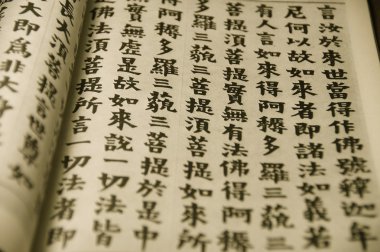 言汝於來世當得作佛號釋迦牟
尼何以故如來者即諸法如義若
有人言如來得阿耨多羅三藐三
菩提須菩提實無有法佛得阿耨
多羅三藐三菩提須菩提如來所
得阿耨多羅三藐三菩提於是中
無實無虛是故如來說一切法皆
是佛法須菩提所言一切法者即
大須菩提言世尊如
大即為非大身